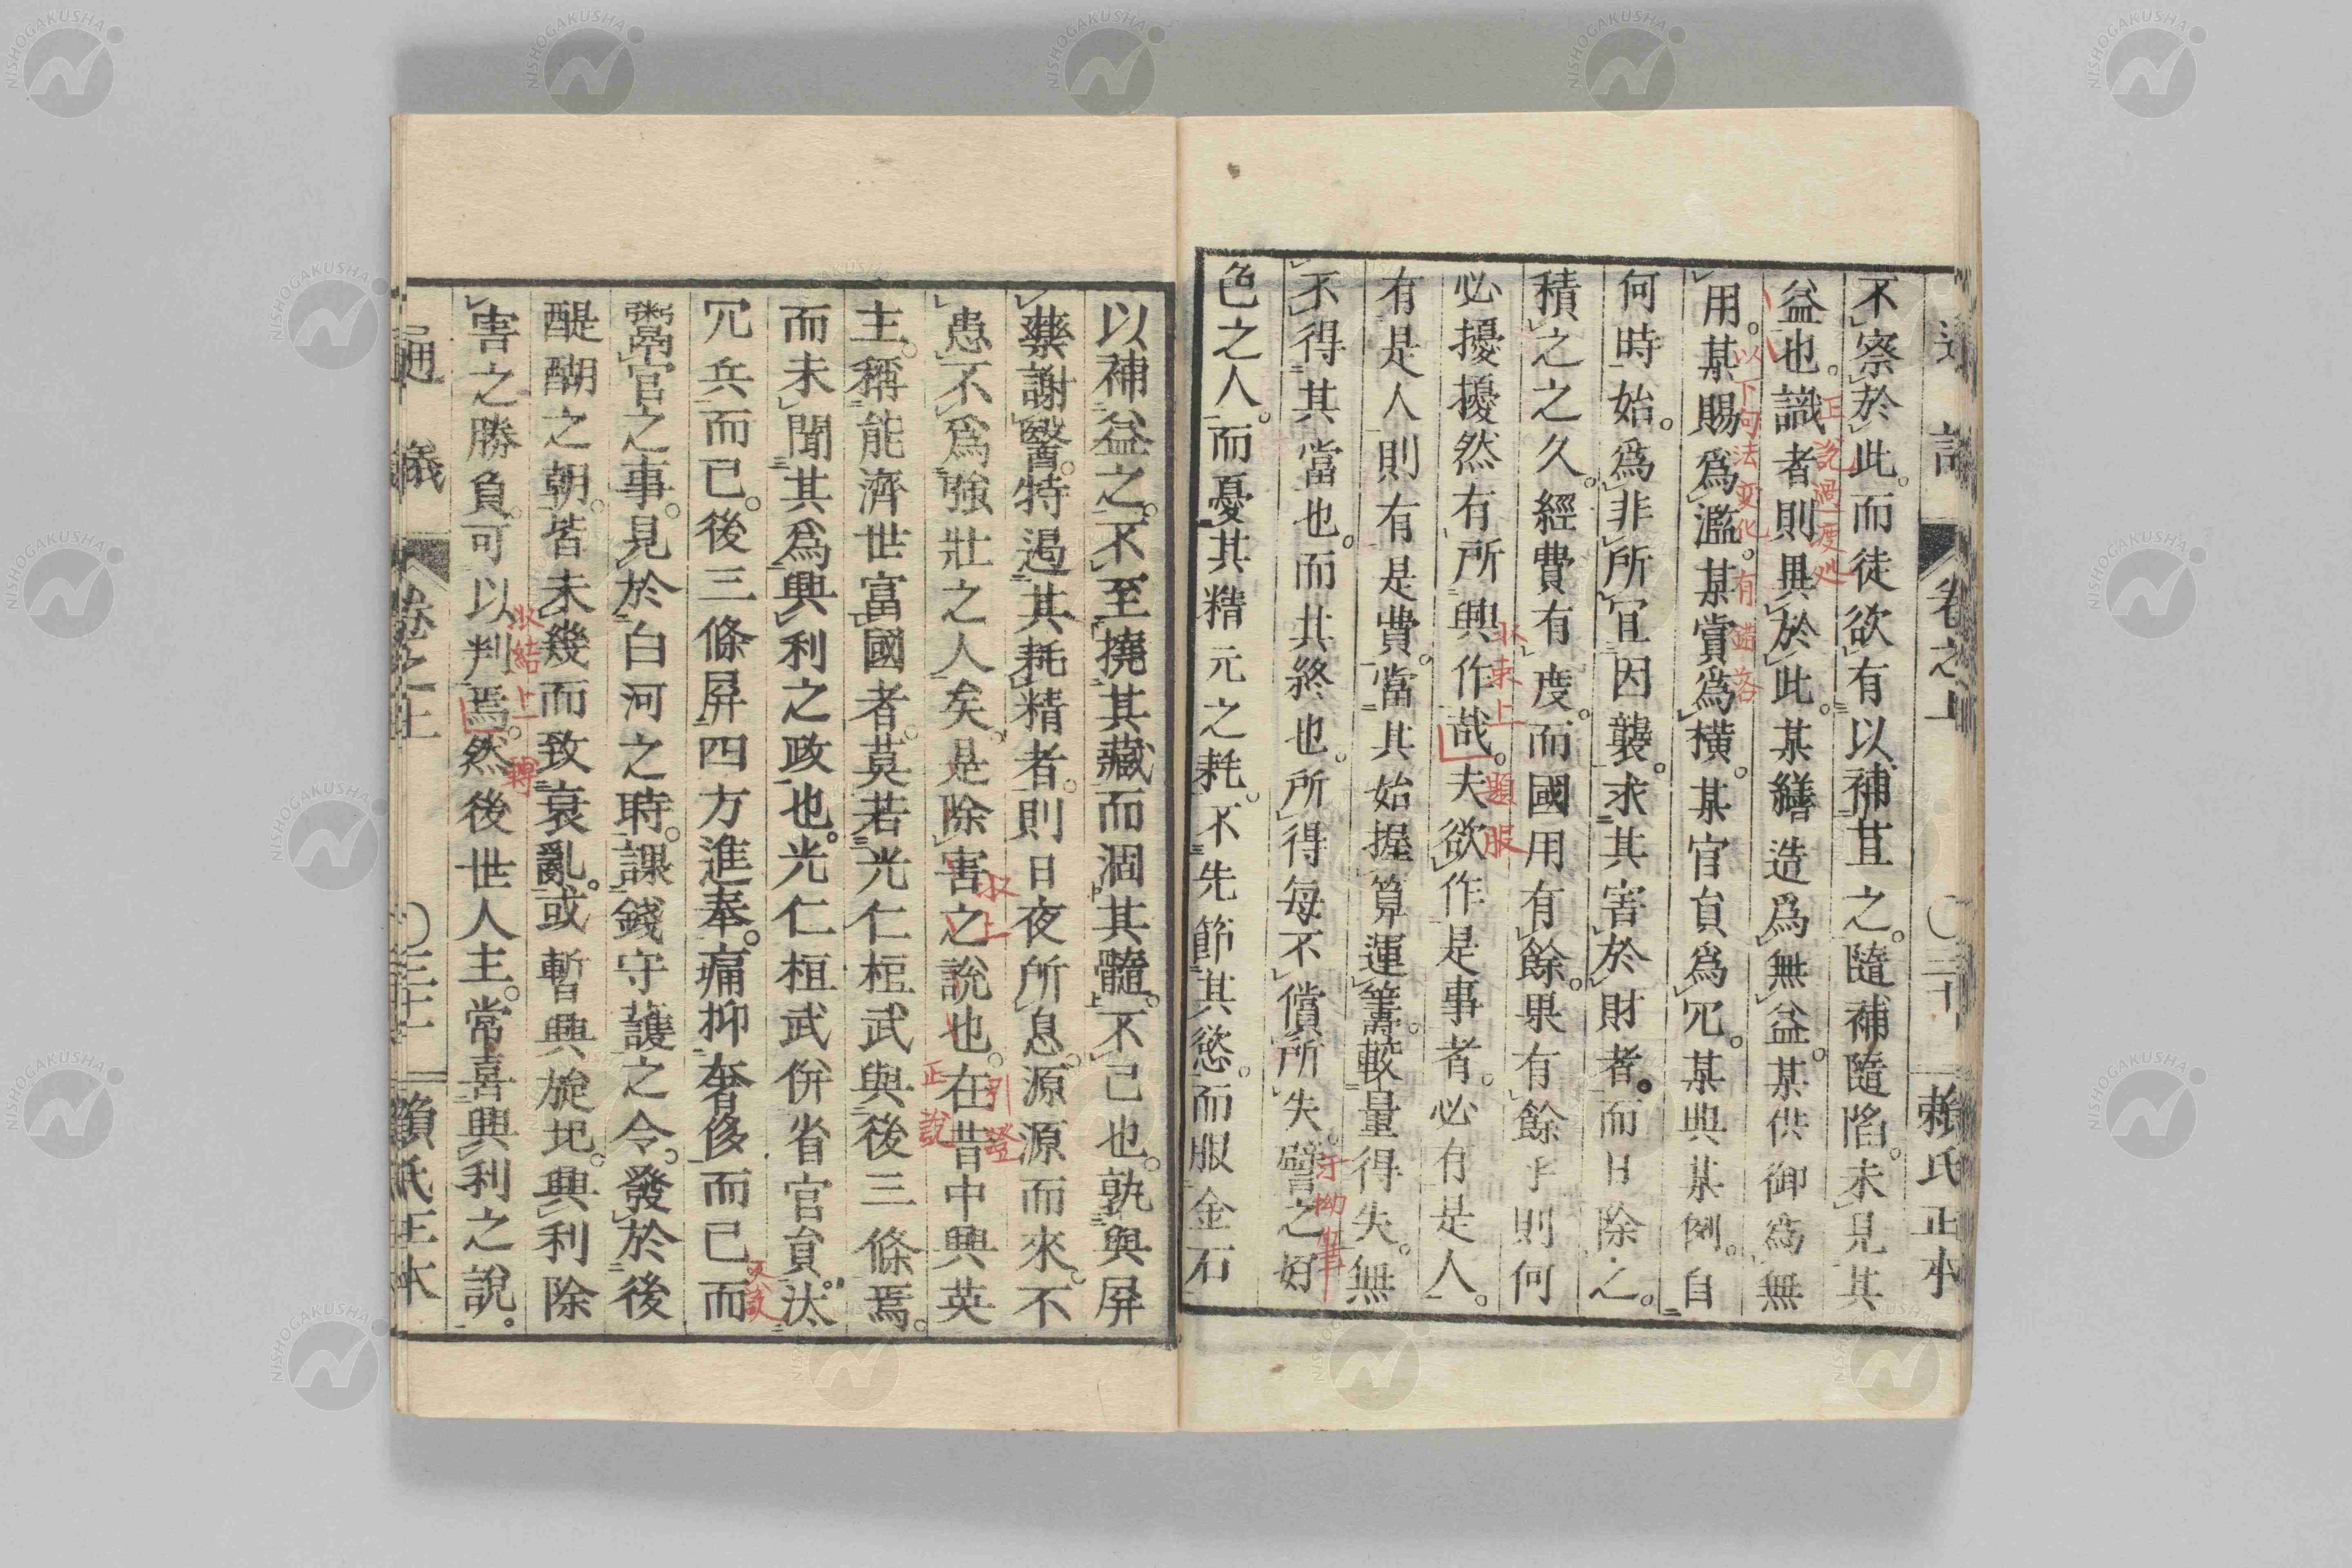 不察於此。而徒欲有以補苴之。隨補隨陷。未見其
益也。識者則異於此。某繕造爲無益。某供御爲無
用。某賜爲濫。某賞爲橫。某官員爲冗。某典某例。自
何時始。爲非所宜因襲。求其害於財者。而日除之。
積之之久。經費有度。而國用有餘。果有餘乎則何
必擾擾然有所興作哉。夫欲作是事者。必有是人。
有是人則有是費。當其始握算運籌。較量得失。無
不得其當也。而其終也。所得每不償所失。譬之好
色之人。而憂其精元之耗。不先節其慾。而服金石
以補益之。不至撓其藏而涸其髓。不已也。孰與屏
藥謝醫。特遏其耗精者。則日夜所息。源源而來。不
患不爲強壯之人矣。是除害之說也。在昔中興英
主。稱能濟世富國者。莫若光仁桓武與後三條焉。
而未聞其爲興利之政也。光仁桓武併省官員。汰
冗兵而已。後三條屏四方進奉。痛抑奢侈而已而
鬻官之事。見於白河之時。課錢守護之令。發於後
醍醐之朝。皆未幾而致衰亂。或暫興旋圯。興利除
害之勝負。可以判焉。然後世人主。常喜興利之說。
通議 卷之上 〇三十一 賴氏正本
正說過度処
以下句法変化有錯落
収束上
題服
牙拗筆
収上
引證
正說
収結上
轉